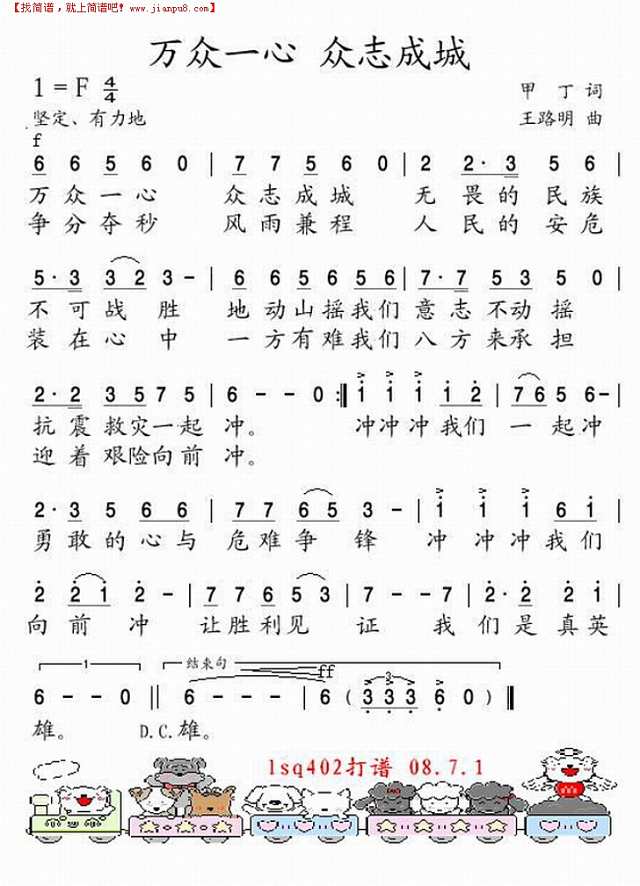 【找简谱，就上简谱吧! www.jianpu8.com】
万众一心 众志成城
1 = F 4/4
甲 丁 词
坚定、有力地
王路明 曲
f
6 6 5 6 0 | 7 7 5 6 0 | 2 2· 3 5 6 |
万 众 一 心 众 志 成 城 无 畏 的 民 族
争 分 夺 秒 风 雨 兼 程 人 民 的 安 危
5· 3 3 2 3 - | 6 6 5 6 5 6 | 7· 7 5 3 5 0 |
不 可 战 胜 地 动 山 摇 我 们 意 志 不 动 摇
装 在 心 中 一 方 有 难 我 们 八 方 来 承 担
2· 2 3 5 7 5 | 6 - - 0 :‖ 1 1 1 1 2 | 7 6 5 6 - |
抗 震 救 灾 一 起 冲。 冲 冲 冲 我 们 一 起 冲
迎 着 艰 险 向 前 冲。
2· 3 5 6 6 | 7 7 6 5 3 | - 1 1 6 1 |
勇 敢 的 心 与 危 难 争 锋 冲 冲 冲 我 们
2 2 1 2 - | 7 7 6 5 3 | 7 - - 7 | 2· 2 3 2 |
向 前 冲 让 胜 利 见 证 我 们 是 真 英
1 结束句 ff
6 - - 0 ‖ 6 - - - | 6 ( 3 3 3 6 0 ) ‖
3
雄。 D.C. 雄。
lsq402打谱 08.7.1